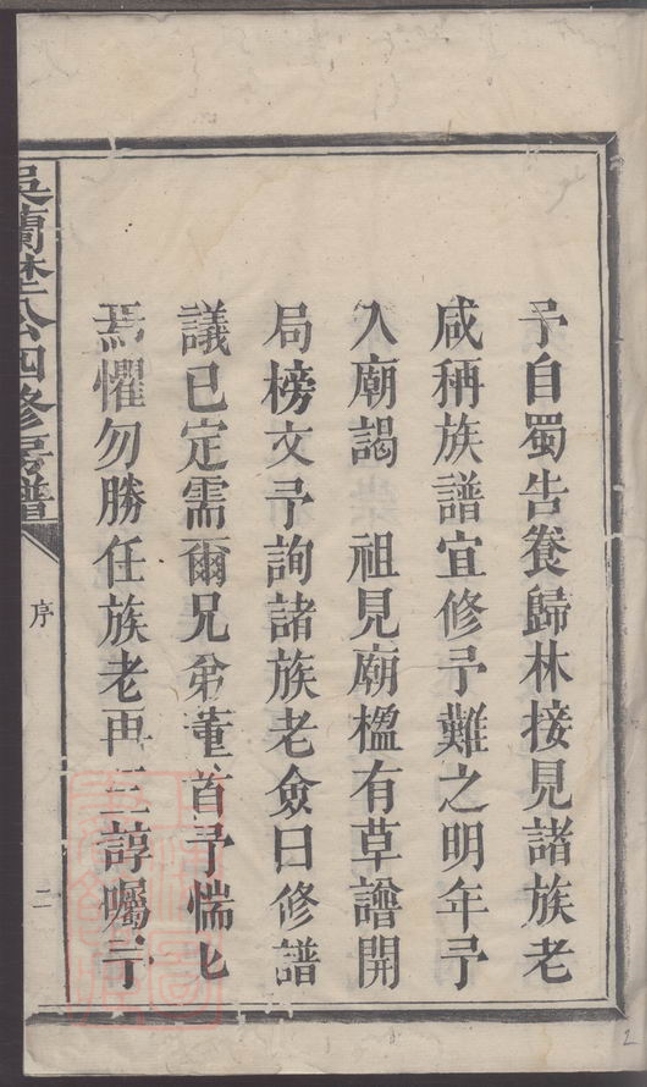 予自蜀告養歸林接見諸族老
咸稱族譜宜修予難之明年予
入廟謁　祖見廟楹有草譜開
局榜文予詢諸族老僉曰修譜
議已定需爾兄弟董首予惴匕
焉懼勿勝任族老再三諄囑予
吳蘭埜公四修房譜
序
二
2